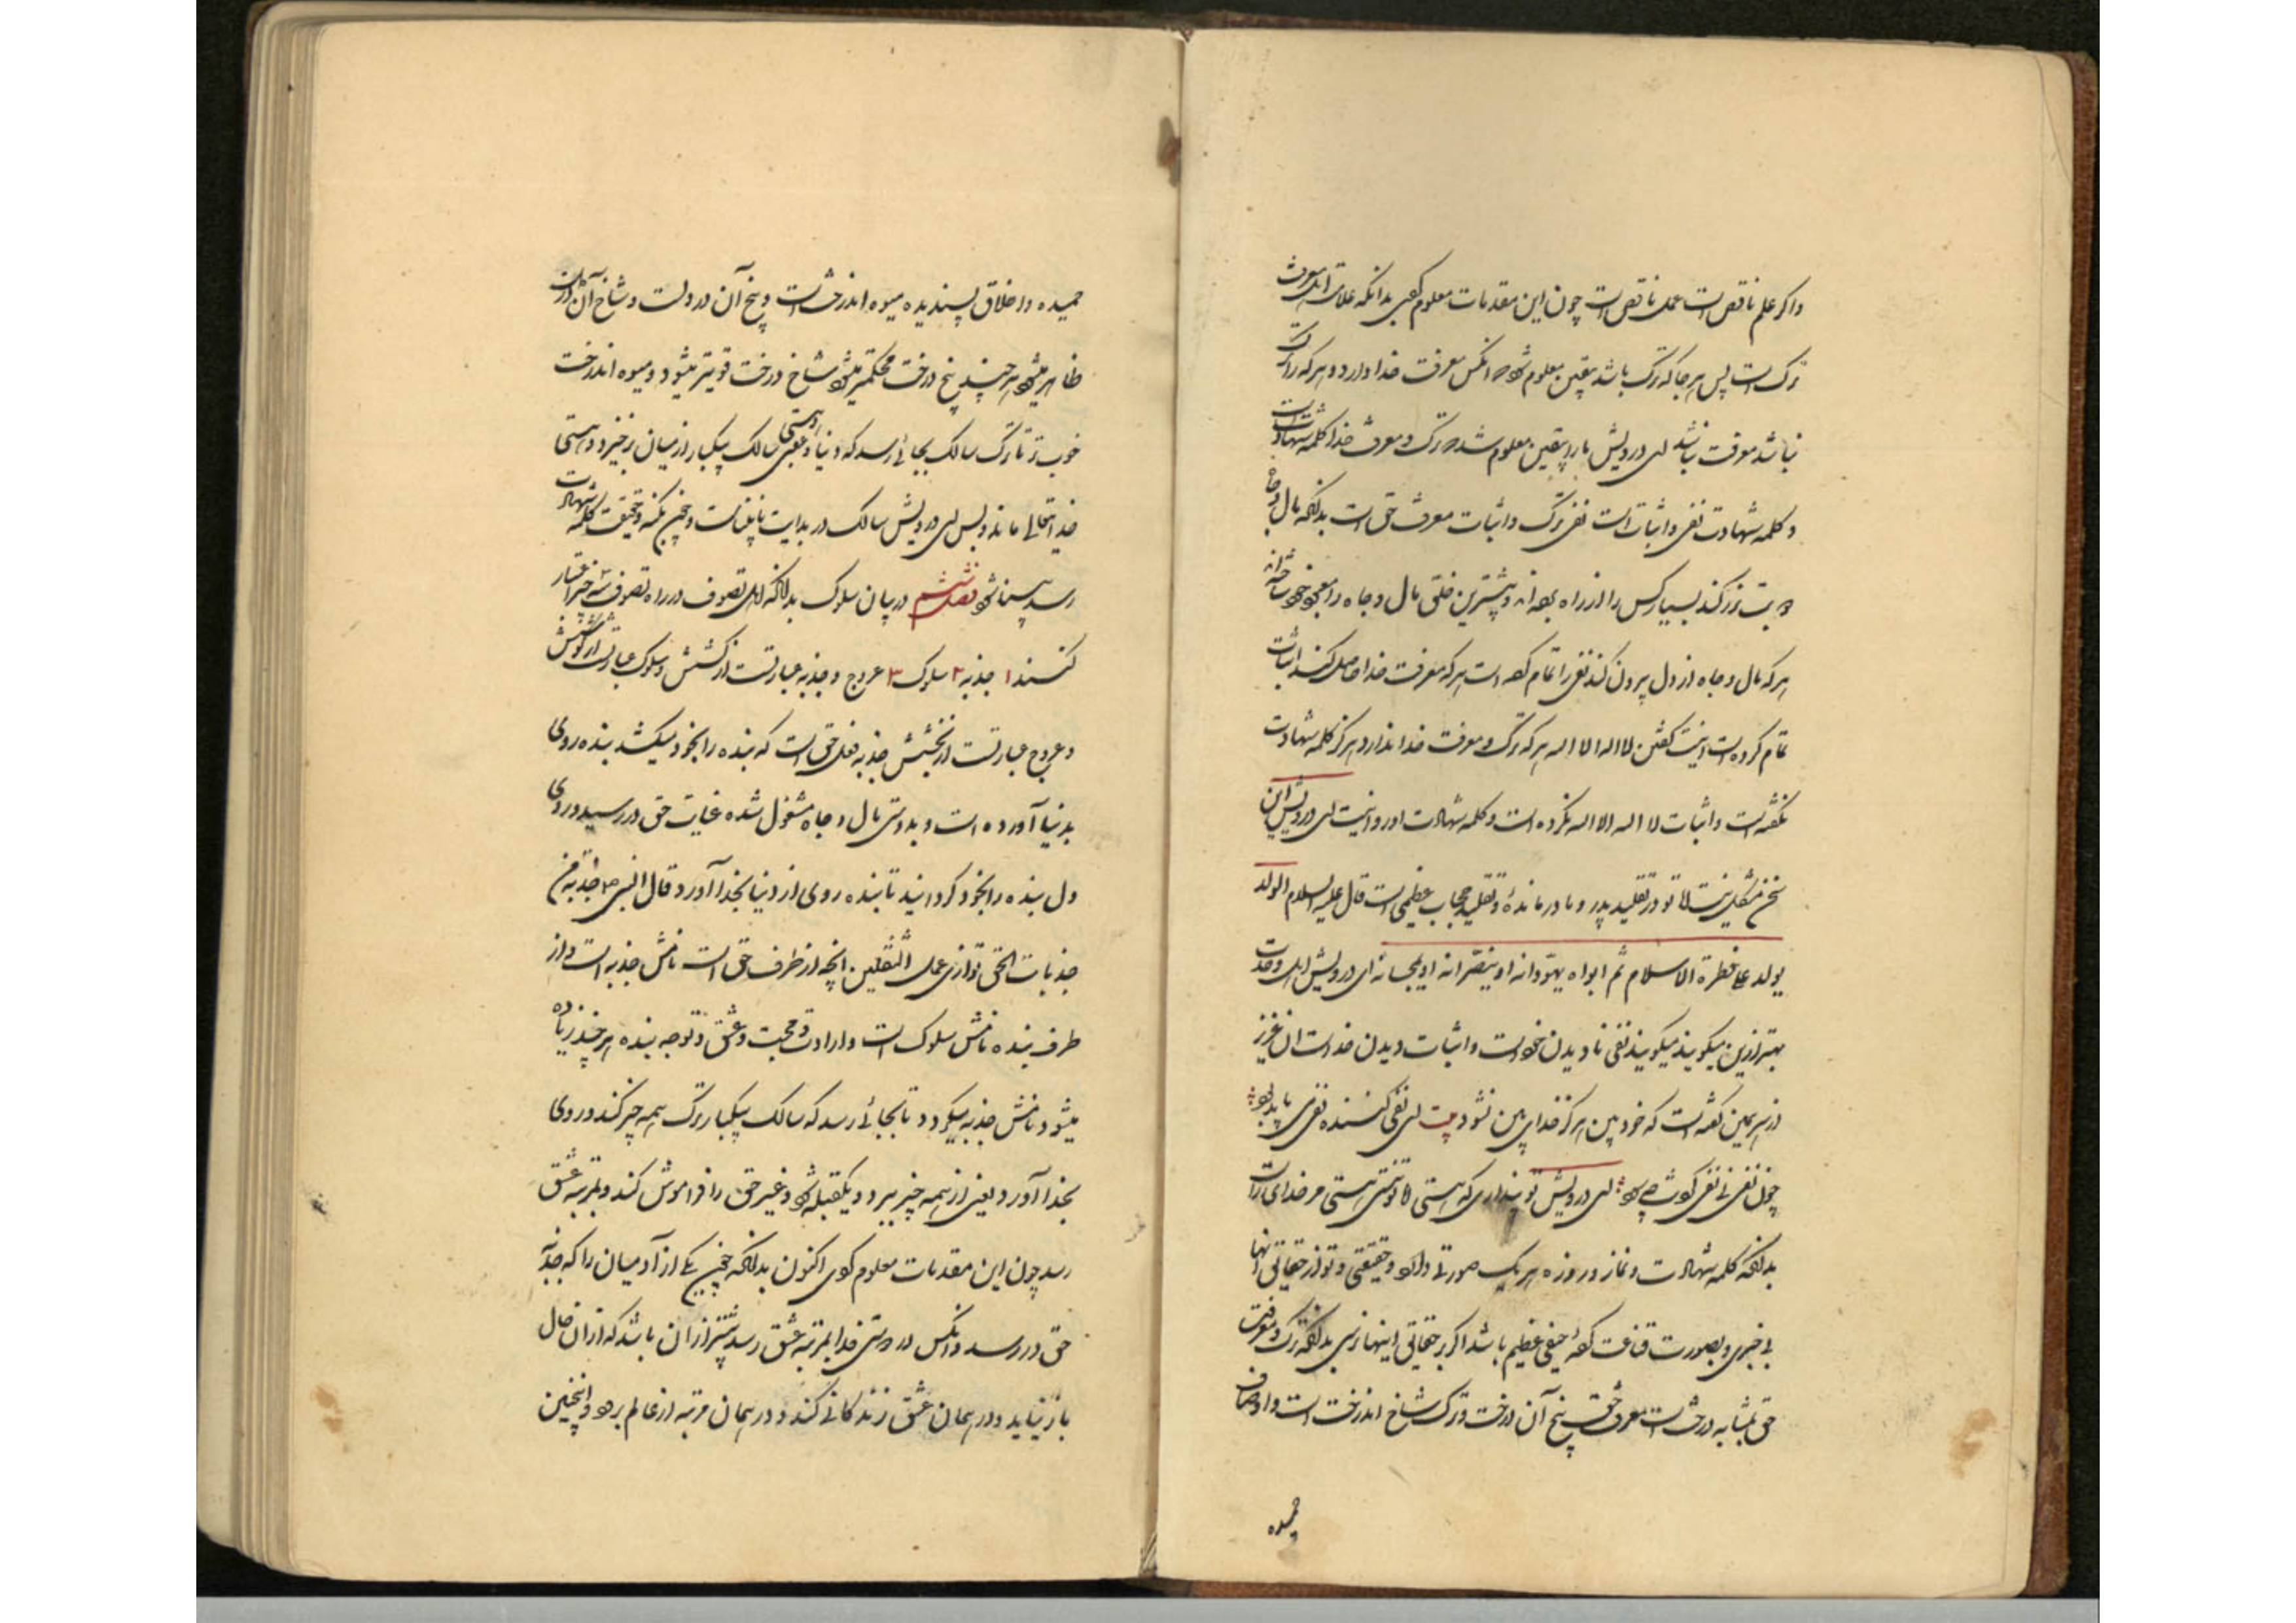 واکر علم ناقص است عمل ناقص است چون این مقدمات معلوم کردی بدانکه علامت اهل معرفت
ترک است پس هرجا که ترک باشد بیقین معلوم شود که انکس معرفت خدا دارد و هرکه را ترک
نباشد معرفت نباشد ای درویش ما را بیقین معلوم شد که ترک و معرفت خدا کلمه شهادتست
و کلمه شهادت نفی و اثبات است نفی ترک و اثبات معرفت حق است بدانکه مال و جاه
بت بزرکند بسیار کس را از راه برده اند و بیشترین خلق مال و جاه را معبود خود ساخته اند
هرکه مال و جاه از دل بیرون کند نفی را تمام کرده است هرکه معرفت خدا حاصل کند اثبات
تمام کرده است اینست کفتن لا اله الا الله هرکه ترک و معرفت خدا ندارد هرکز کلمه شهادت
نکفته است و اثبات لا اله الا الله نکرده است و کلمه شهادت اورو انیست ای درویش این
سخن مشکلی نیست لا تو در تقلید پدر و مادر مانده و تقلید حجاب عظیمی است قال علیه السلام الولد
یولد علی فطرة الاسلام ثم ابواه یهودانه او ینصرانه او یمجسانه ای درویش اهل وحدت
بهتر ازین میکویند میکویند نفی نادیدن خود است و اثبات دیدن خداست ان عزیز
از سر همین کفته است که خود بین هرکز خدای بین نشود بیت ای نفی کننده نفی می باید بود
چون نفی نی نفی کوشی چه بود ای درویش تو پنداری که هستی لا تو نیستی هستی مر خدای راست
بدانکه کلمه شهادت و نماز و روزه هریک صورتی دارد و حقیقتی و تو از حقایق انها
بی خبری و بصورت قناعت کرده حیفی عظیم باشد اکر بحقایق اینها نرسی بدانکه ترک و معرفت
حق بمثابه درخت است معرفت حق بیخ آن درخت و ترک شاخ اندرخت است و اوصاف
حمیده
حمیده و اخلاق پسندیده میوه اندرخت است و بیخ آن در دل است و شاخ آن از
ظاهر میشود هرچند بیخ درخت محکمتر میشود شاخ درخت قویتر میشود و میوه اندرخت
خوب تر تا ترک سالک بجائی رسد که دنیا و عقبی و هستی سالک بیکبار از میان برخیزد و هستی
خدایتعالی ماند و بس ای درویش سالک در بدایت با یقین است و همچنین بکنه و حقیقت کلمه شهادت
رسد شود فصل ششم در بیان سلوک بدانکه اهل تصوف در راه تصوف سه چیز اعتبار
کنند ۱ جذبه ۲ سلوک ۳ عروج و جذبه عبارتست از کشش و سلوک عبارتست از کوشش
و عروج عبارتست از بخشش جذبه فعل حق است که بنده را بخود میکشد بنده روی
بدنیا آورده است و بدوستی مال و جاه مشغول شده عنایت حق در رسید و روی
دل بنده را بخود کردانید تا بنده روی از دنیا بخدا آورد قال النبی جذبة من
جذبات الحق توازی عمل الثقلین انچه از طرف حق است نامش جذبه است و از
طرف بنده نامش سلوک است و ارادت و محبت و عشق و توجه بنده هرچند زیاده
میشود نامش جذبه میکردد تا بجائی رسد که سالک بیکبار ترک همه چیز کند و روی
بخدا آورد یعنی از همه چیز ببرد و یکقبله شود و غیر حق را فراموش کند و بمرتبه عشق
رسد چون این مقدمات معلوم کردی اکنون بدانکه چون یکی از آدمیان را که جذبه
حق در رسد و انکس در دوستی خدا بمرتبه عشق رسد بیشتر ازان باشد که از ان حال
باز نیاید و در همان عشق زندکانی کند و در همان مرتبه از عالم برود و اینچنین